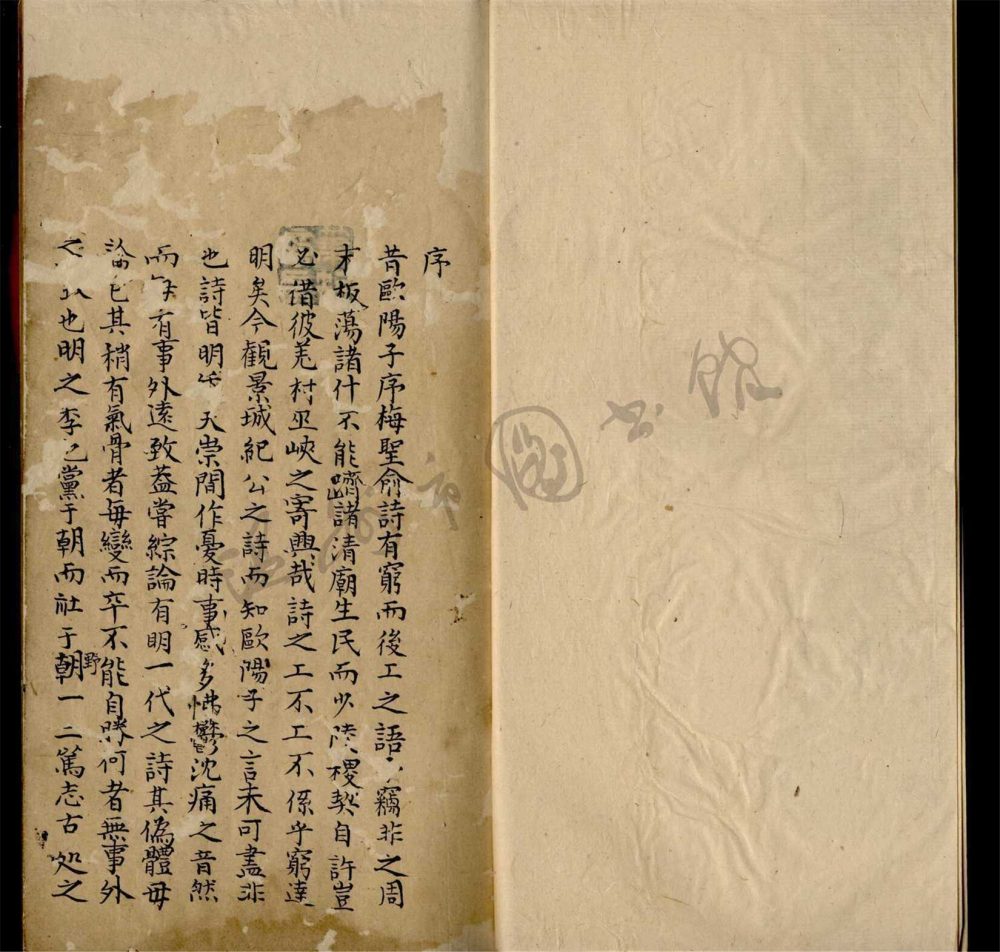 序
昔歐陽子序梅聖俞詩有窮而後工之語竊非之周
末板蕩諸什不能躋諸清廟生民而少陵稷契自許豈
必借彼羗村巫峽之寄興哉詩之工不工不係乎窮達
明矣今觀景城紀公之詩而知歐陽子之言未可盡非
也詩皆明天崇間作憂時事感多怫鬱沈痛之音然
而有事外遠致葢嘗綜論有明一代之詩其偽體毋
論已其稍有氣骨者毎變而卒不能自勝何者無事外
之也明之季已黨于朝而社于朝野一二篤志古處之
圖書館